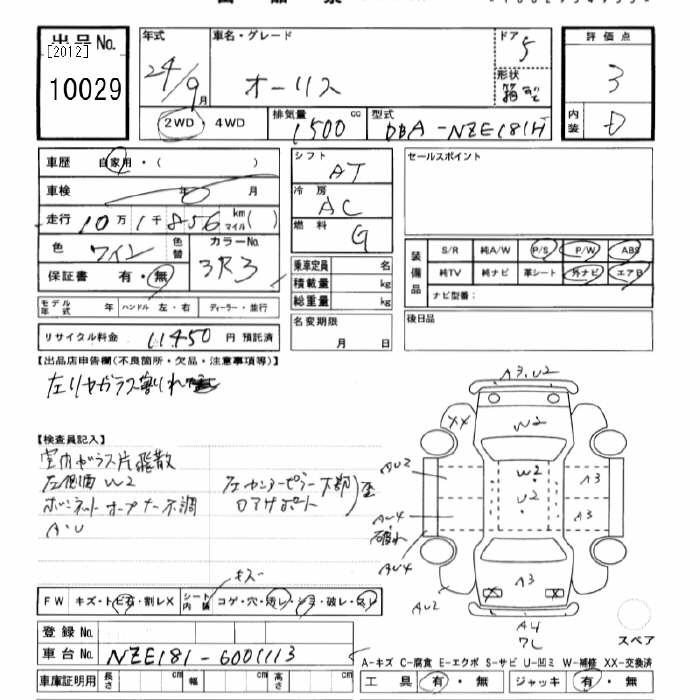 出品No. [2012] 10029
年式 24/9月 車名・グレード オーリス ドア 5 形状 箱 評価点 3
2WD・4WD 排気量 1500 cc 型式 DBA-NZE181H 内装 D
車歴 自家用・( )
車検 年 月
走行 10万1千856 km マイル( )
色 ワイン 色替 カラーNo. 3R3
保証書 有・無
モデル年式 年 ハンドル 左・右 ディーラー・並行
リサイクル料金 11450円 預託済
シフト AT
冷房 AC
燃料 G
乗車定員 名
積載量 kg
総重量 kg
名変期限
月 日
セールスポイント
装備品 S/R 純A/W P/S P/W ABS
純TV 純ナビ 革シート 外ナビ エアB
ナビ型番:
後日品
【出品店申告欄(不良箇所・欠品・注意事項等)】
左リヤガラス割れ
【検査員記入】
室内ガラス片飛散
左側面W2
ボンネットオープナー不調
A・U
左センターピラー下部 歪
ロアサポート
A3.U2
XX
W2
AU2
W2
U2
A3
A3
AU4
破れ
AU4
A3
AU2
A4
ワレ
スペア
キズ
FW キズ・トビ石・割レX シート内張 コゲ・穴・汚レ・シミ・破レ・スレ
登録No.
車台No. NZE181-6001113
車庫証明用 長さ cm 幅 cm 高さ cm
A-キズ C-腐食 E-エクボ S-サビ U-凹ミ W-補修 XX-交換済
工具 有・無 ジャッキ 有・無